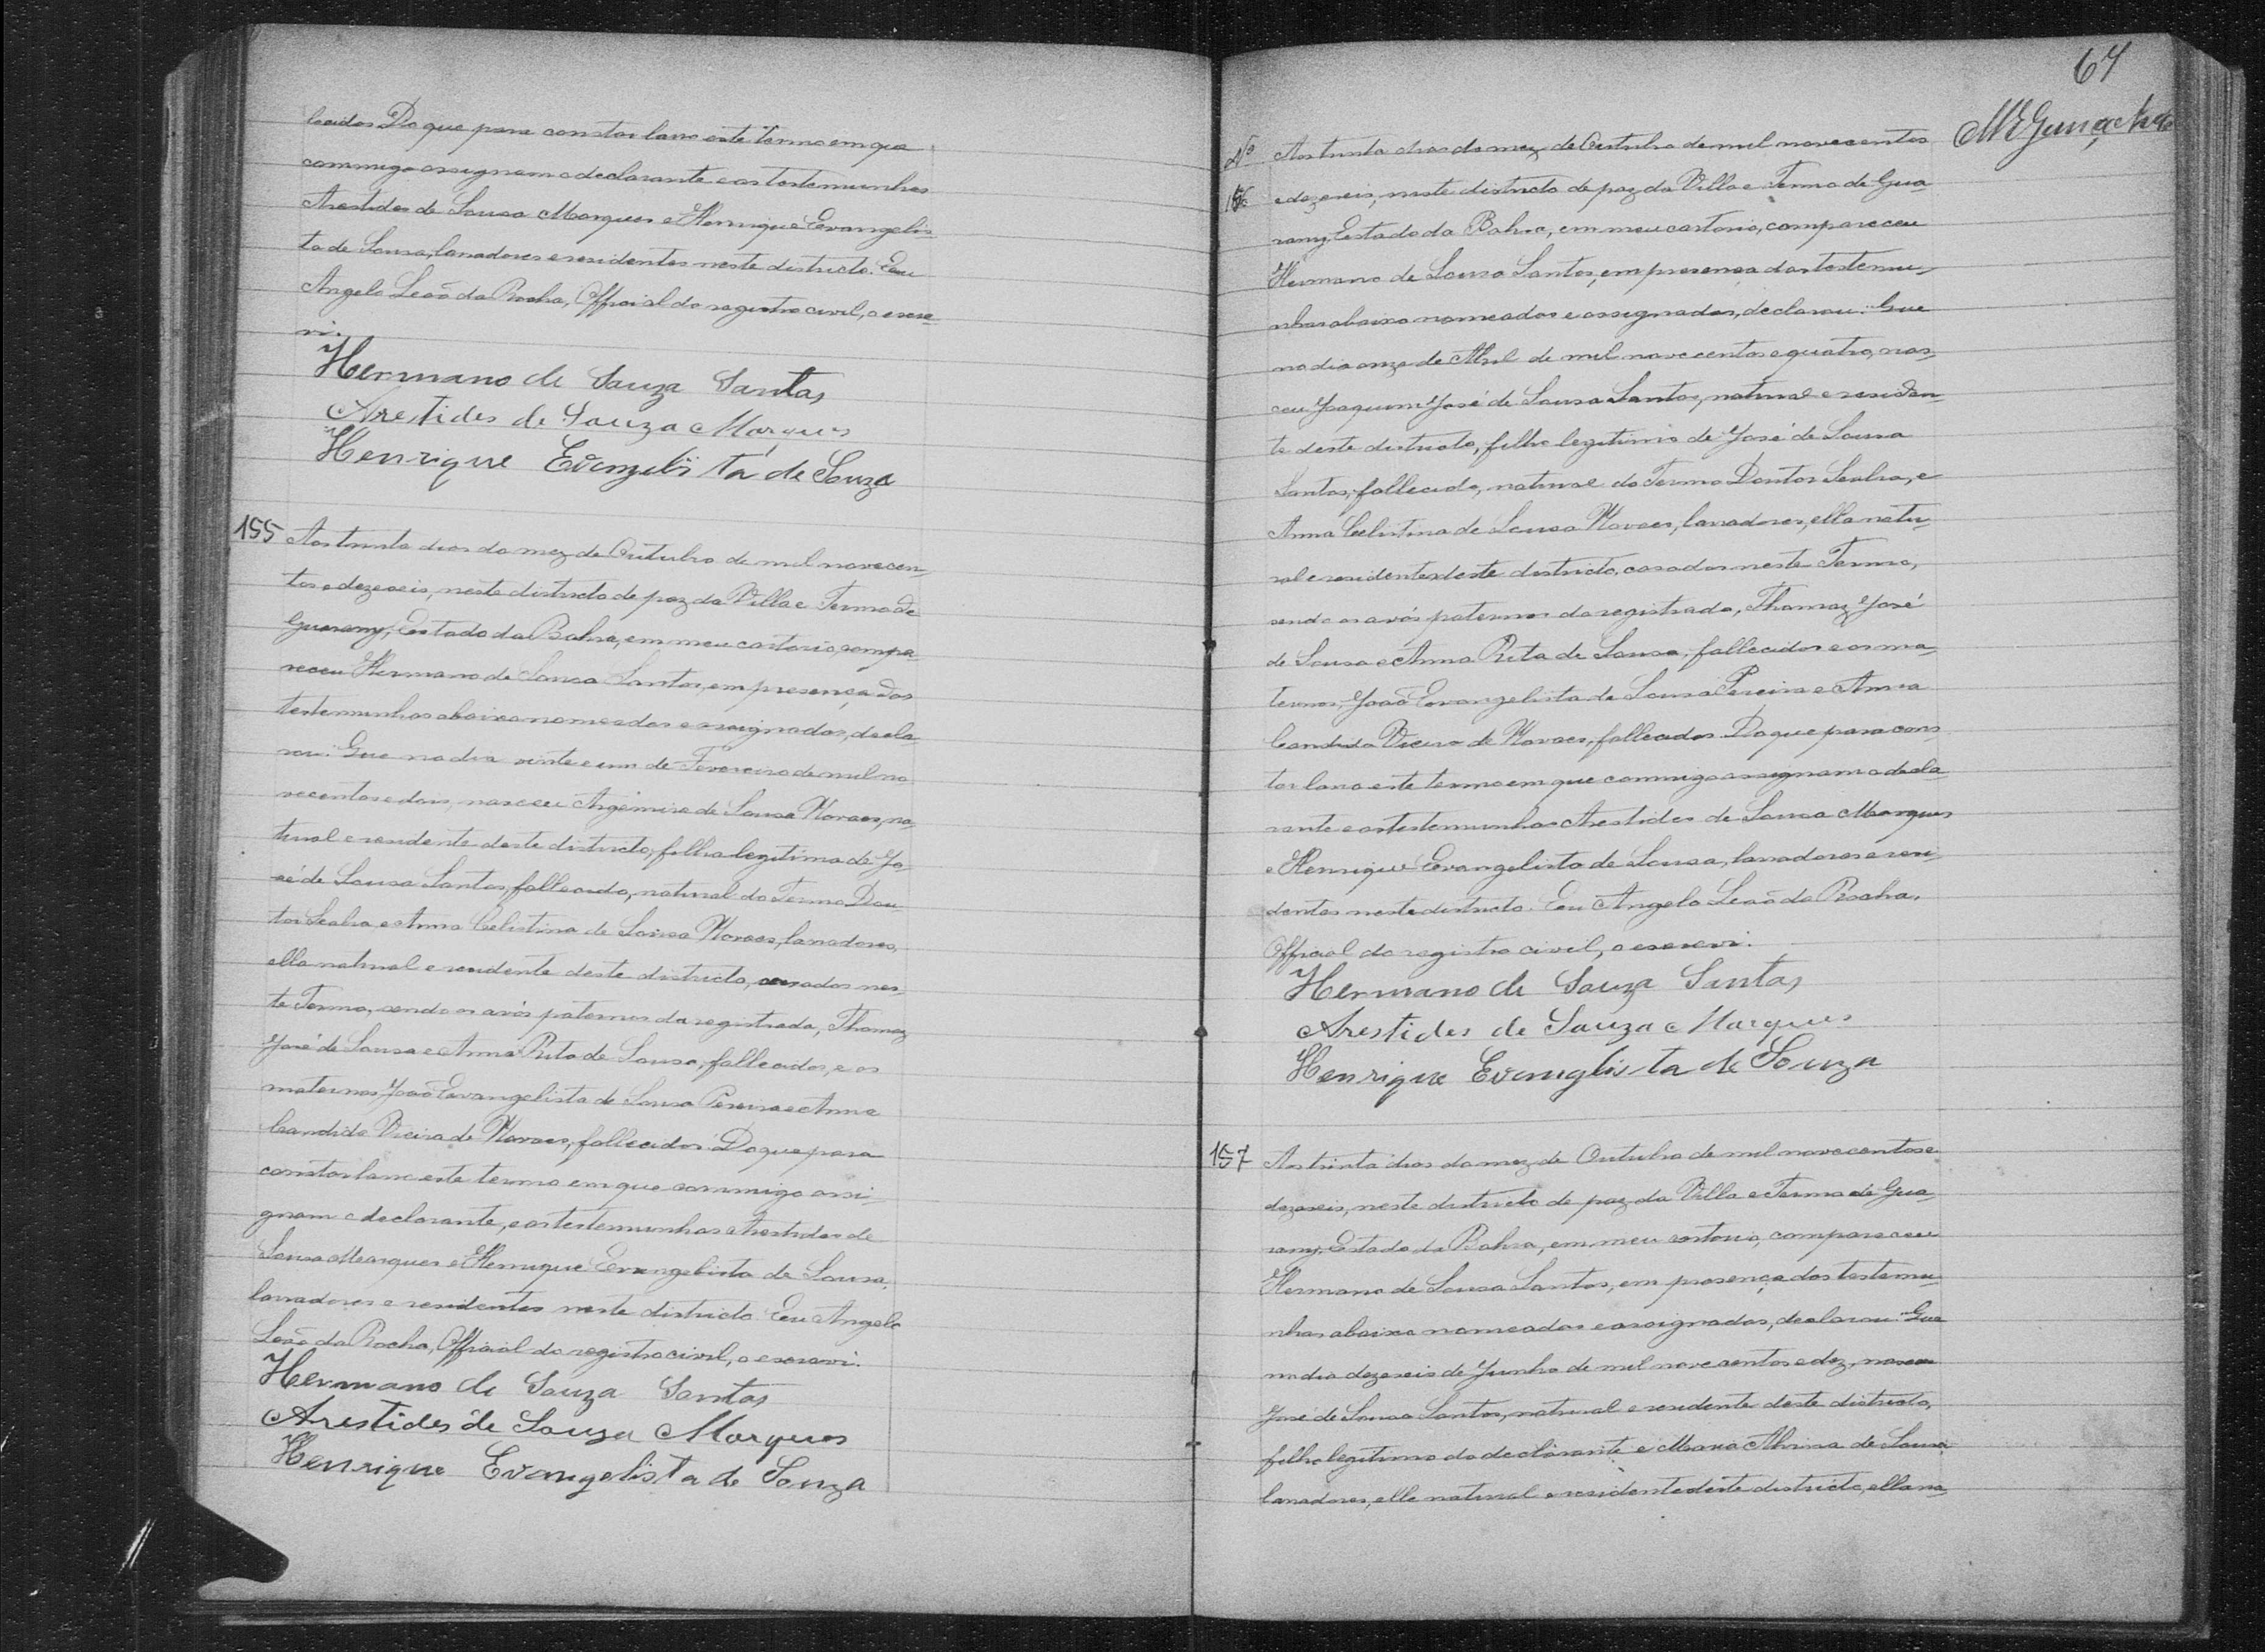 lecidos Do que para constar lavro este termo em que
commigo assignam o declarante e as testemunhas
Arestides de Sousa Marques e Henrique Evangelis-
ta de Sousa, lavradores e residentes neste districto. Eu
Angelo Leão da Rocha, Official do registro civil, o escre-
vi.
Hermano de Souza Santos
Arestides de Souza Marques
Henrique Evangelista de Souza
155 Aos trinta dias do mez de Outubro de mil novecen-
tos e dezeseis, neste districto de paz da Villa e Termo de
Guarany, Estado da Bahia, em meu cartorio, compa-
receu Hermano de Sousa Santos, em presença das
testemunhas abaixo nomeadas e assignadas, decla-
rou: Que no dia vinte e um de Fevereiro de mil no-
vecentos e dois, nasceu Argemira de Sousa Novaes, na-
tural e residente deste districto, filha legitima de Jo-
sé de Sousa Santos, fallecido, natural do Termo Dou-
tor Seabra, e Anna Celistina de Sousa Novaes, lavradores,
ella natural e residente deste districto, casados nes-
te Termo, sendo os avós paternos da registrada, Thomaz
José de Sousa e Anna Rita de Sousa, fallecidos, e os
maternos, João Evangelista de Sousa Pereira e Anna
Candida Vieira de Novaes, fallecidos. Do que para
constar lavro este termo em que commigo assi-
gnam o declarante, e as testemunhas Arestides de
Sousa Marques e Henrique Evangelista de Sousa,
lavradores e residentes neste districto. Eu Angelo
Leão da Rocha, Official do registro civil, o escrevi.
Hermano de Souza Santos
Arestides de Souza Marques
Henrique Evangelista de Souza
67
Nº Aos trinta dias do mez de Outubro de mil novecentos
156 e dezeseis, neste districto de paz da Villa e Termo de Gua-
rany, Estado da Bahia, em meu cartorio, compareceu
Hermano de Sousa Santos, em presença das testemu-
nhas abaixo nomeadas e assignadas, declarou: Que
no dia onze de Abril de mil novecentos e quatro, nas-
ceu Joaquim José de Sousa Santos, natural e residen-
te deste districto, filho legitimo de José de Sousa
Santos, fallecido, natural do Termo Doutor Seabra, e
Anna Celistina de Sousa Novaes, lavradores, ella natu-
ral e residente deste districto, casados neste Termo,
sendo os avós paternos do registrado, Thomaz José
de Sousa e Anna Rita de Sousa, fallecidos e os ma-
ternos, João Evangelista de Sousa Pereira e Anna
Candida Vieira de Novaes, fallecidos. Do que para cons-
tar lavro este termo em que commigo assignam o decla-
rante e as testemunhas Arestides de Sousa Marques
e Henrique Evangelista de Sousa, lavradores e resi-
dentes neste districto. Eu Angelo Leão da Rocha,
Official do registro civil, o escrevi.
Hermano de Souza Santos
Arestides de Souza Marques
Henrique Evangelista de Souza
157 Aos trinta dias do mez de Outubro de mil novecentos e
dezeseis, neste districto de paz da Villa e Termo de Gua-
rany, Estado da Bahia, em meu cartorio, compareceu
Hermano de Sousa Santos, em presença das testemu-
nhas abaixo nomeadas e assignadas, declarou: Que
no dia dezeseis de Junho de mil novecentos e dez, nasceu
José de Sousa Santos, natural e residente deste districto,
filho legitimo do declarante e Maria de Sousa,
lavradores, elle natural e residente deste districto, ella na-